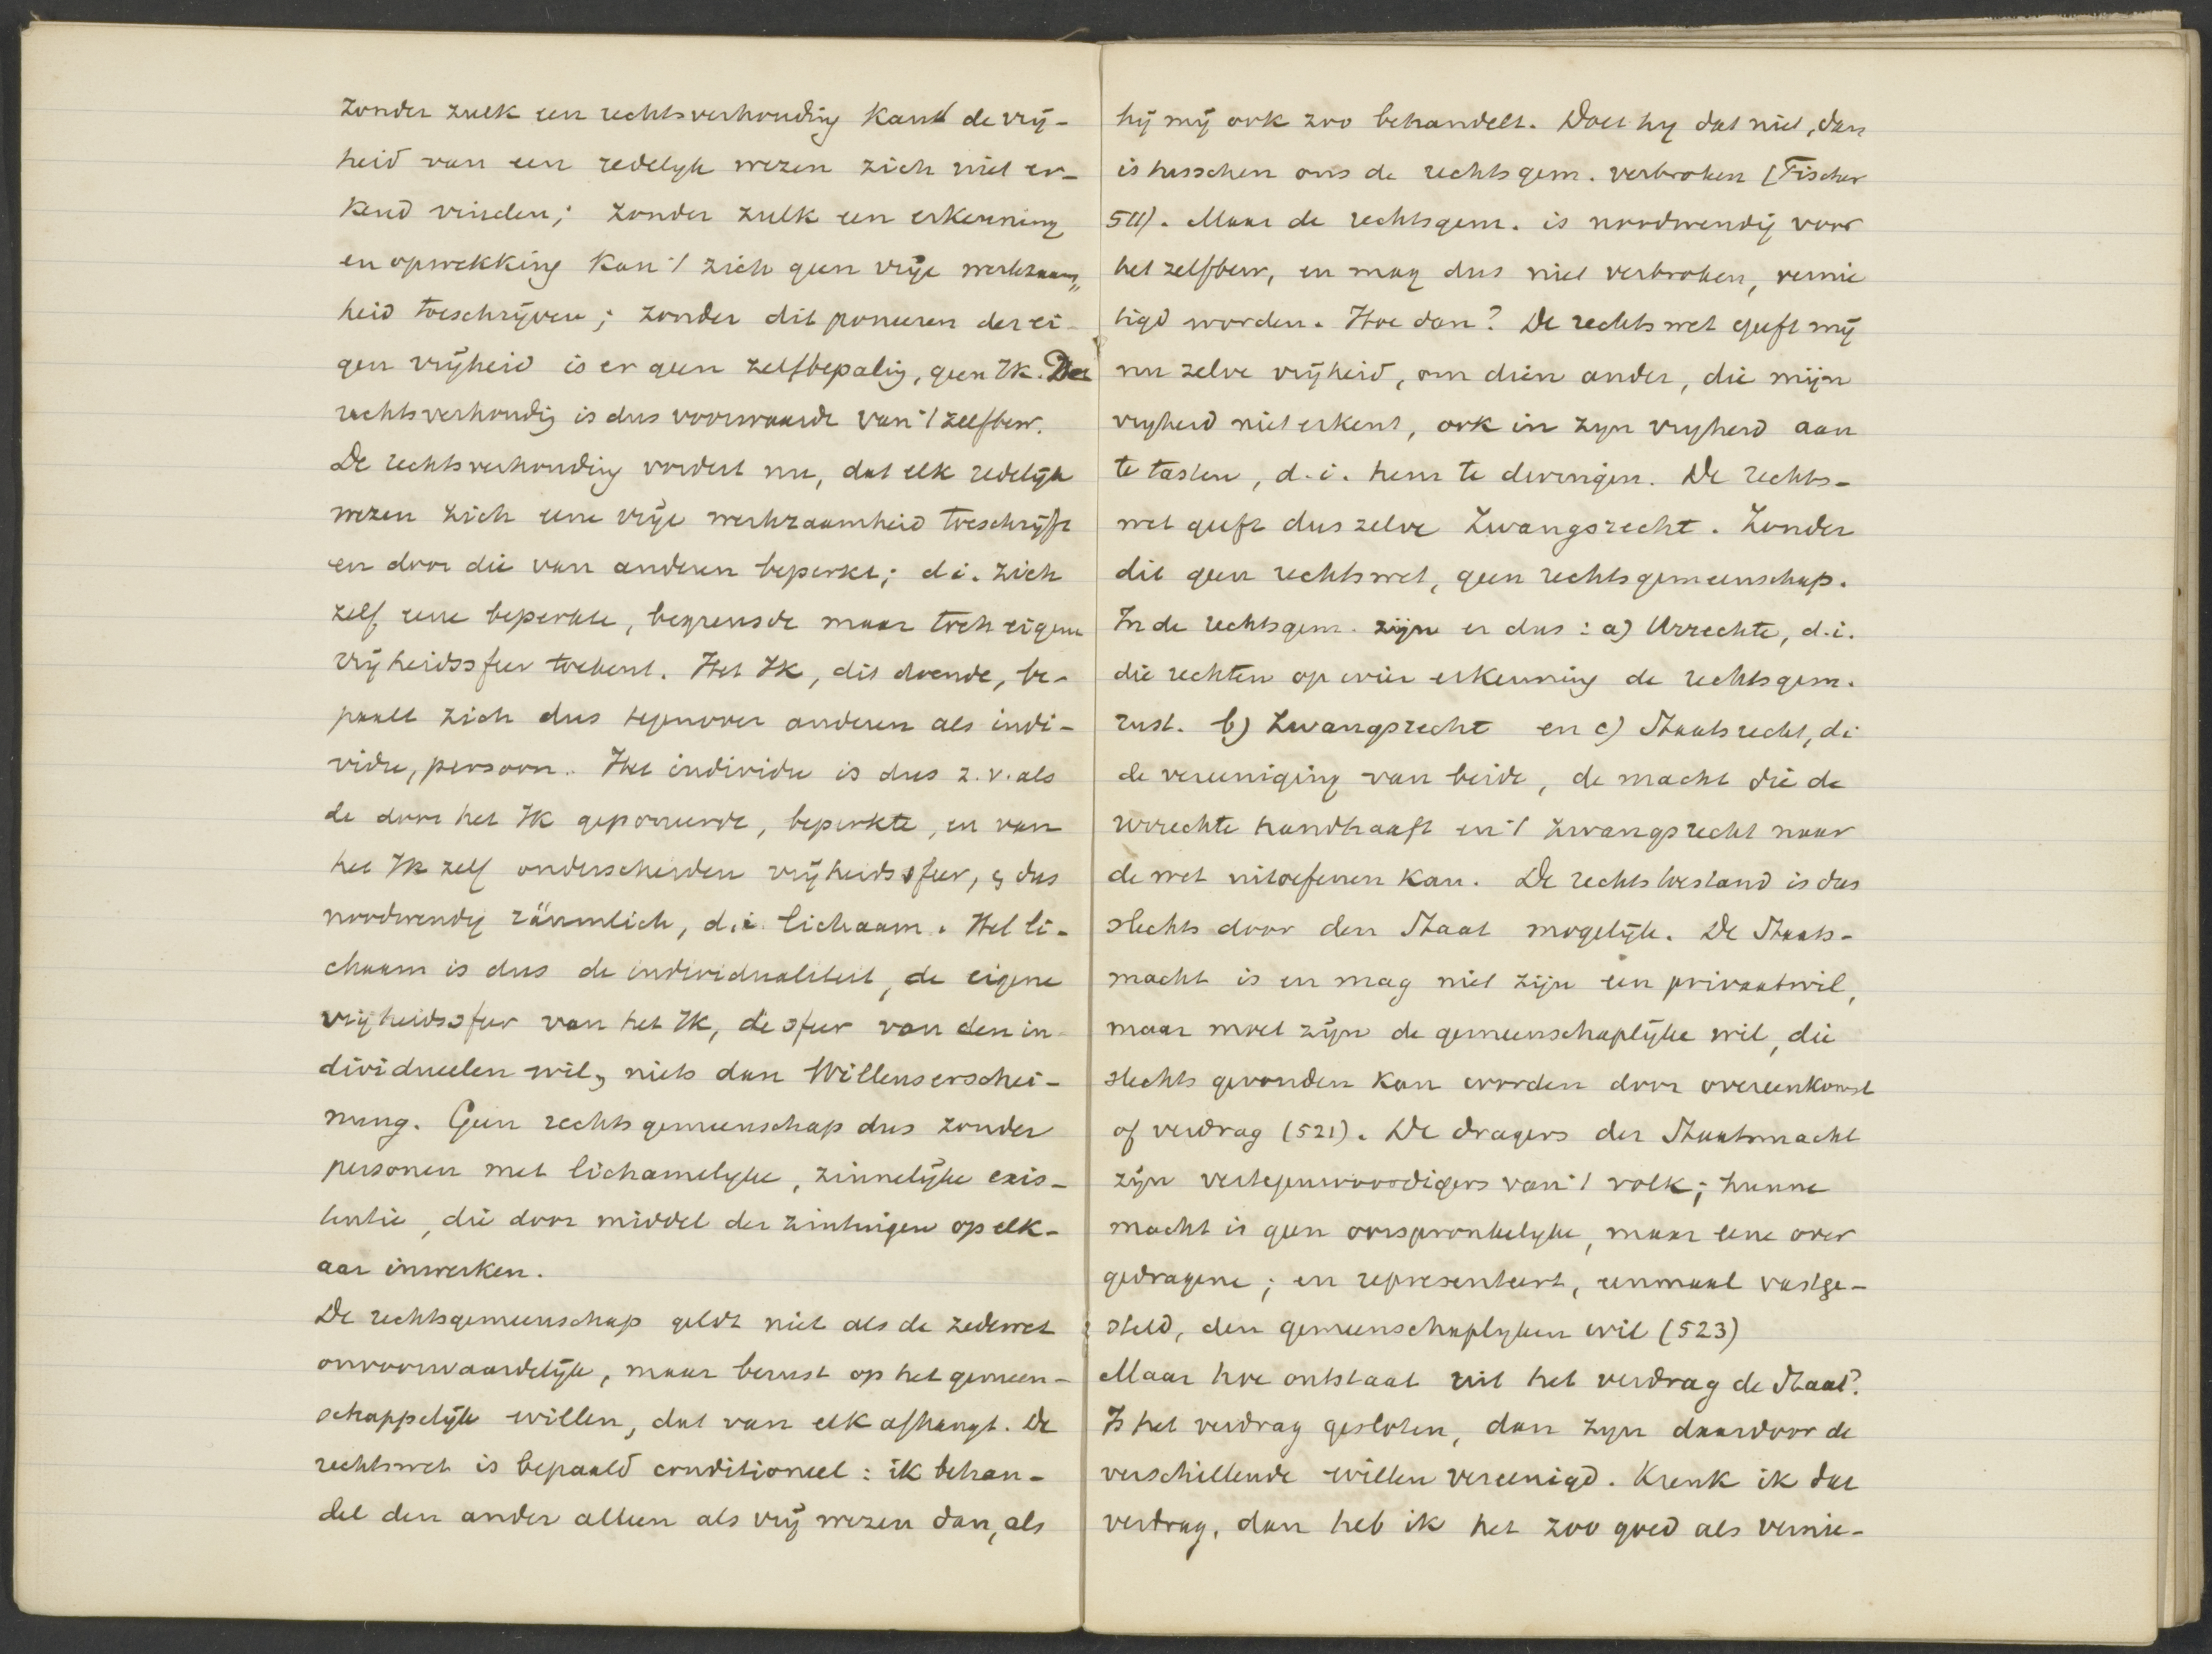 zonder zulk een rechtsverhouding kan de vrij-
heid van een redelijk wezen zich niet er-
kend vinden; zonder zulk een erkenning
en opwekking kan 't zich geen vrije werkzaam-
heid toeschrijven; zonder dit poneeren der ei-
gen vrijheid is er geen zelfbepaling, geen Ik. De
rechtsverhoudig is dus voorwaarde van 't zelfbew.
De rechtsverhouding vordert nu, dat elk redelijk
wezen zich eene vrije werkzaamheid toeschrijft
en door die van anderen beperkt; d.i. zich
zelf eene beperkte, begrensde maar toch eigene
vrijheidssfeer toekent. Het Ik, dit doende, be-
paalt zich dus tegenover anderen als indi-
vidu, persoon. Het individu is dus z.v. als
de door het Ik geponeerde, beperkte, en van
het Ik zelf onderscheiden vrijheidssfeer, & dus
noodwendig räumlich, d.i. lichaam. Het li-
chaam is dus de individualiteit, de eigene
vrijheidssfeer van het Ik, de sfeer van den in-
dividueelen wil, niets dan Willenserschei-
nung. Geen rechtsgemeenschap dus zonder
personen met lichamelijke, zinnelijke exis-
tentie, die door middel der zintuigen op elk-
aar inwerken.
De rechtsgemeenschap geldt niet als de zedewet
onvoorwaardelijk, maar berust op het gemeen-
schappelijk willen, dat van elk afhangt. De
rechtswet is bepaald conditioneel: ik behan-
del den ander alleen als vrij wezen dan, als
hij mij ook zoo behandelt. Doet hij dat niet, dan
is tusschen ons de rechtsgem. verbroken (Fischer
511). Maar de rechtsgem. is noodwendig voor
het zelfbew, en mag dus niet verbroken, vernie
tigd worden. Hoe dan? De rechtswet geeft mij
nu zelve vrijheid, om dien ander, die mijn
vrijheid niet erkent, ook in zijn vrijheid aan
te tasten, d.i. hem te dwingen. De rechts-
wet geeft dus zelve Zwangsrecht. Zonder
dit geen rechtswet, geen rechtsgemeenschap.
In de rechtsgem. zijn er dus: a) Urrechte, d.i.
die rechten op wier erkenning de rechtsgem.
rust. b) Zwangsrecht en c) Staatsrecht, di
de vereeniging van beide, de macht die de
Urrechte handhaaft en 't Zwangsrecht naar
de wet uitoefenen kan. De rechtstoestand is dus
slechts door den Staat mogelijk. De Staats-
macht is en mag niet zijn een privaatwil,
maar moet zijn de gemeenschaplijke wil, die
slechts gevonden kan worden door overeenkomst
of verdrag (521). De dragers der Staatsmacht
zijn vertegenwoordigers van 't volk; hunne
macht is geen oorspronkelijke, maar eene over
gedragene; en representeert, eenmaal vastge-
steld, den gemeenschaplijken wil (523)
Maar hoe ontstaat uit het verdrag de Staat?
Is het verdrag gesloten, dan zijn daardoor de
verschillende willen vereenigd. Krenk ik dat
verdrag, dan heb ik het zoo goed als vernie-